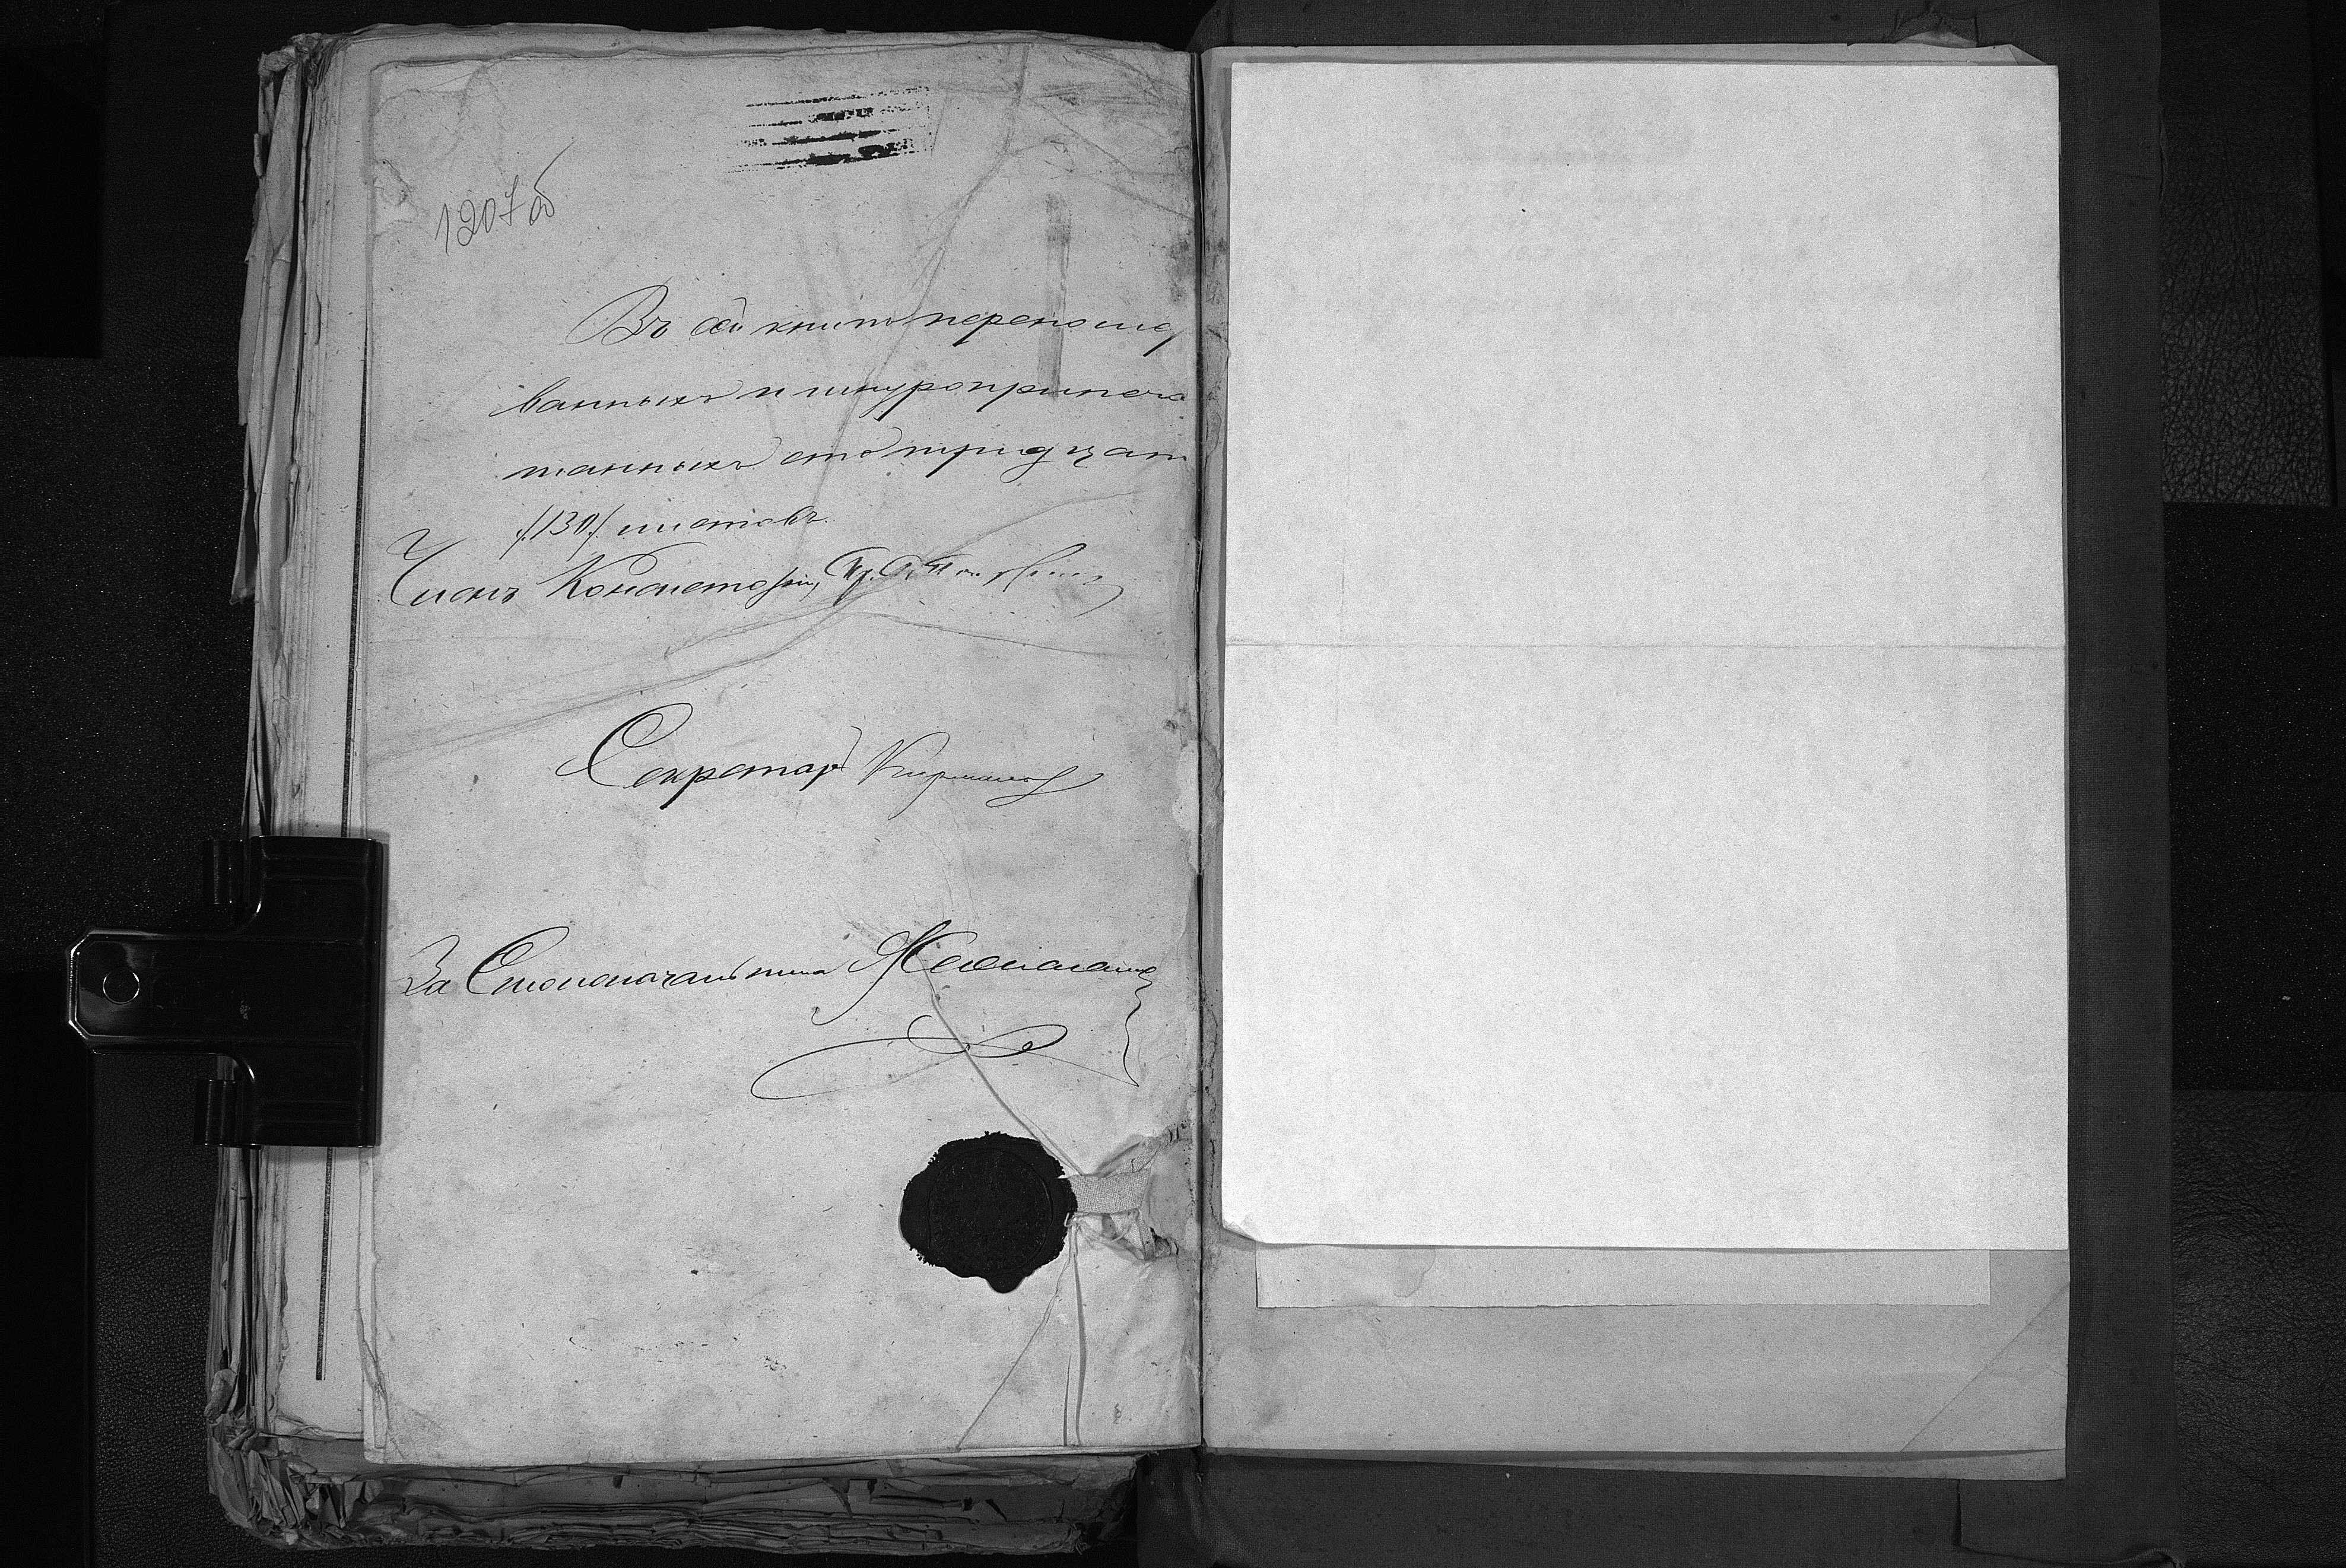 1207об
Въ сей книгѣ перенумеро
ванныхъ и шнуроприпеча
танныхъ сто тридцать
/130/ листовъ.
Членъ Консисторіи,
Секретарь
За Столоначальника